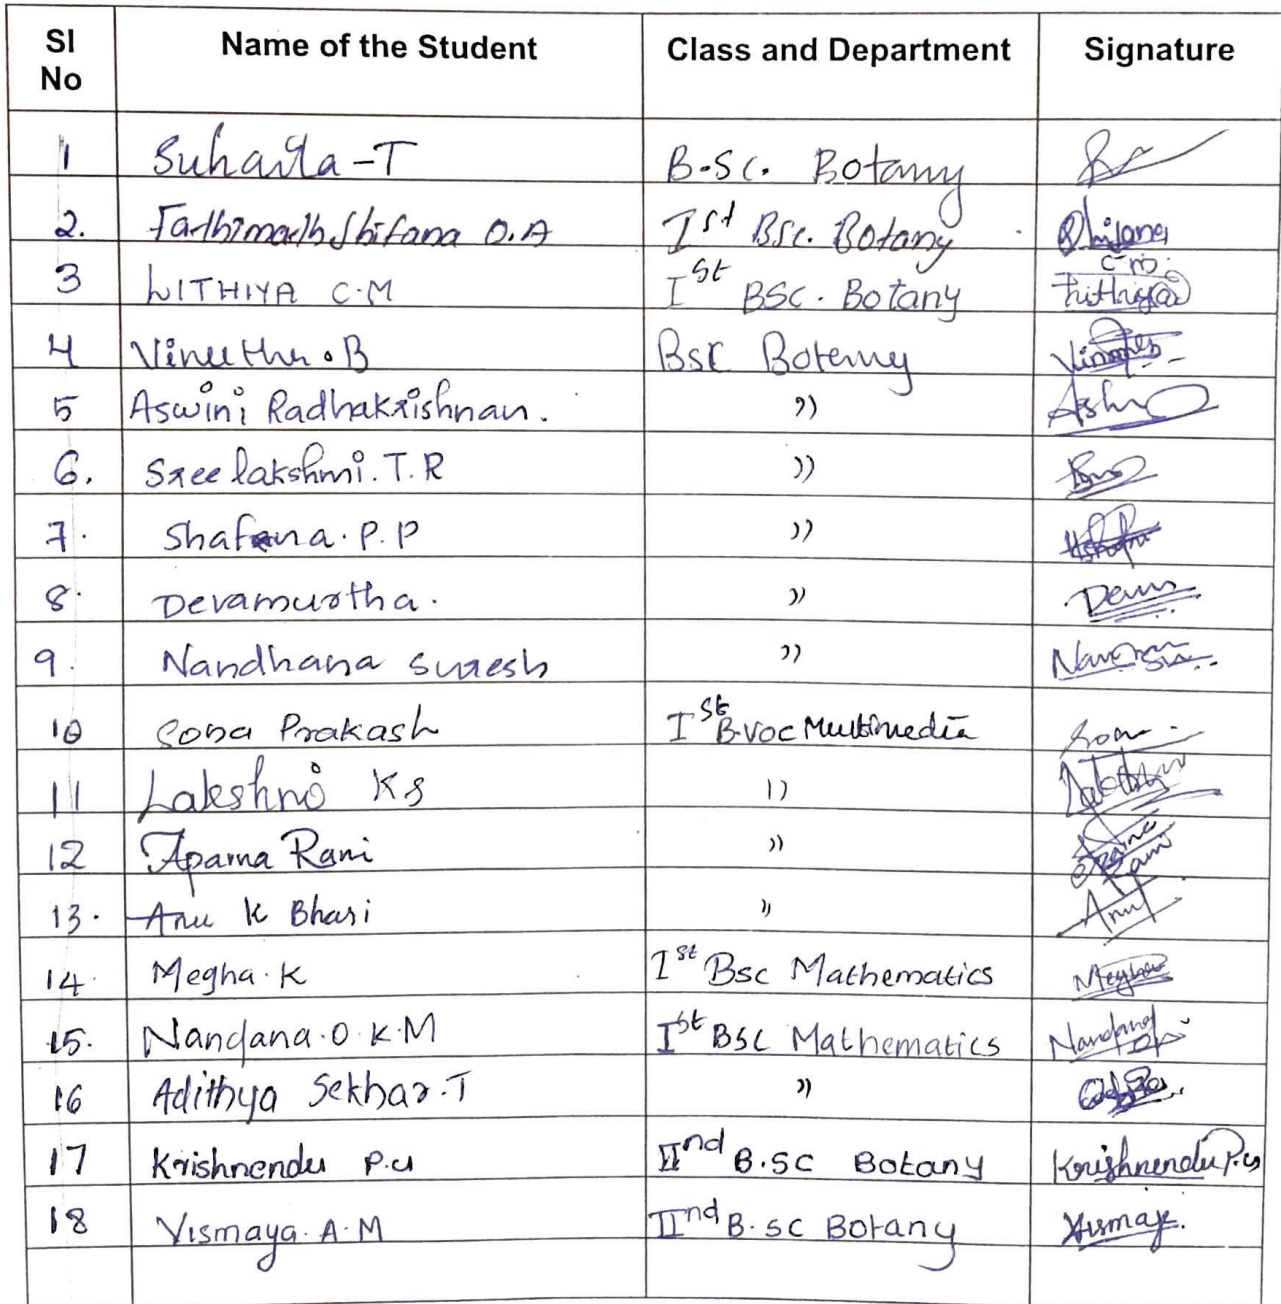 Sl No | Name of the Student | Class and Department | Signature
1 | Suhaila - T | B.Sc. Botany
2. | Fathimath Shifana O.A | Ist BSc. Botany | Shifana
3 | LITHIYA C.M | Ist BSC. Botany | C-M Lithiya
4 | Vinutha . B | BSC Botany
5 | Aswini Radhakrishnan. | ")
6. | Sreelakshmi. T. R | ))
7. | Shafana. P. P | ))
8. | Devamurtha. | ))
9. | Nandhana Suresh | ))
10 | Sona Prakash | Ist B.VOC Multimedia | Sona
11 | Lakshmi K S | ))
12 | Aparna Rani | )) | Rani
13. | Anu K Bhasi | )) | Anu
14. | Megha. K | Ist Bsc Mathematics | Megha
15. | Nandana. O. K. M | Ist BSC Mathematics | Nandana
16 | Adithya Sekhar. T | ))
17 | Krishnendu P.U | IInd B.SC Botany | Krishnendu P.U
18 | Vismaya. A. M | IInd B.SC Botany | Vismaya.